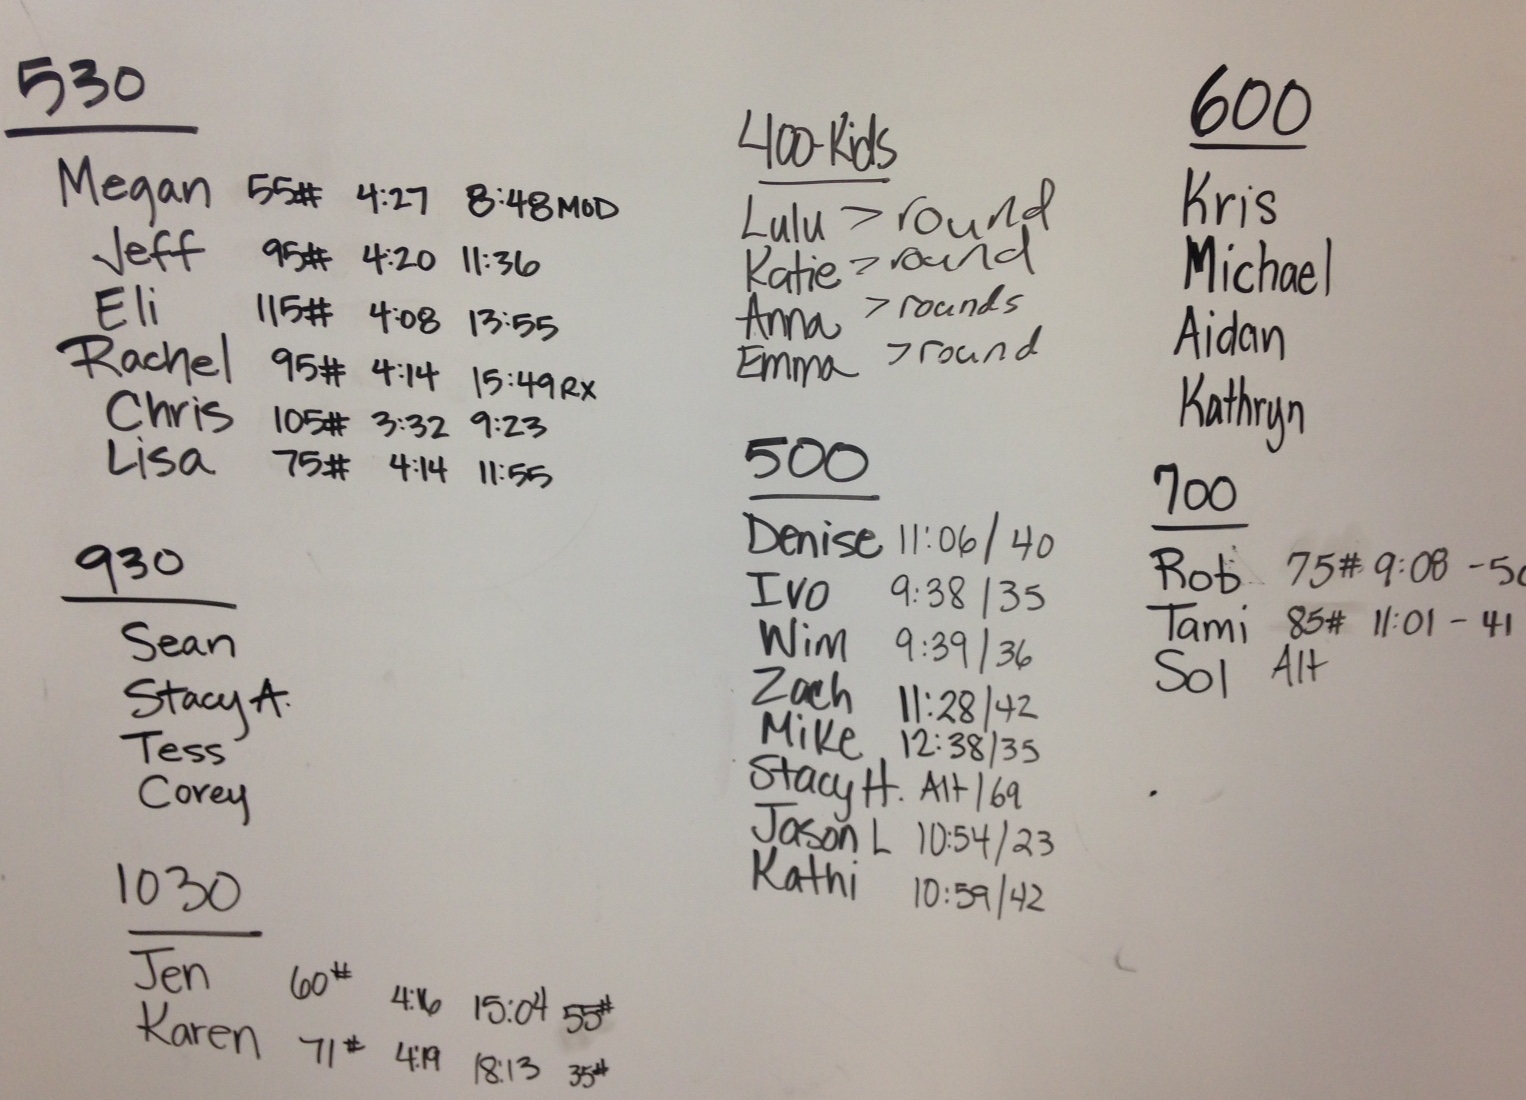 530
Megan 55# 4:27 8:48 MOD
Jeff 95# 4:20 11:36
Eli 115# 4:08 13:55
Rachel 95# 4:14 15:49 RX
Chris 105# 3:32 9:23
Lisa 75# 4:14 11:55
930
Sean
Stacy A.
Tess
Corey
1030
Jen 60# 4:16 15:04 55#
Karen 71# 4:19 18:13 35#
400-Kids
Lulu > round
Katie > round
Anna > rounds
Emma > round
500
Denise 11:06/40
Ivo 9:38/35
Wim 9:39/36
Zach 11:28/42
Mike 12:38/35
Stacy H. Alt/69
Jason L 10:54/23
Kathi 10:59/42
600
Kris
Michael
Aidan
Kathryn
700
Rob 75# 9:08 -
Tami 85# 11:01 - 41
Sol Alt